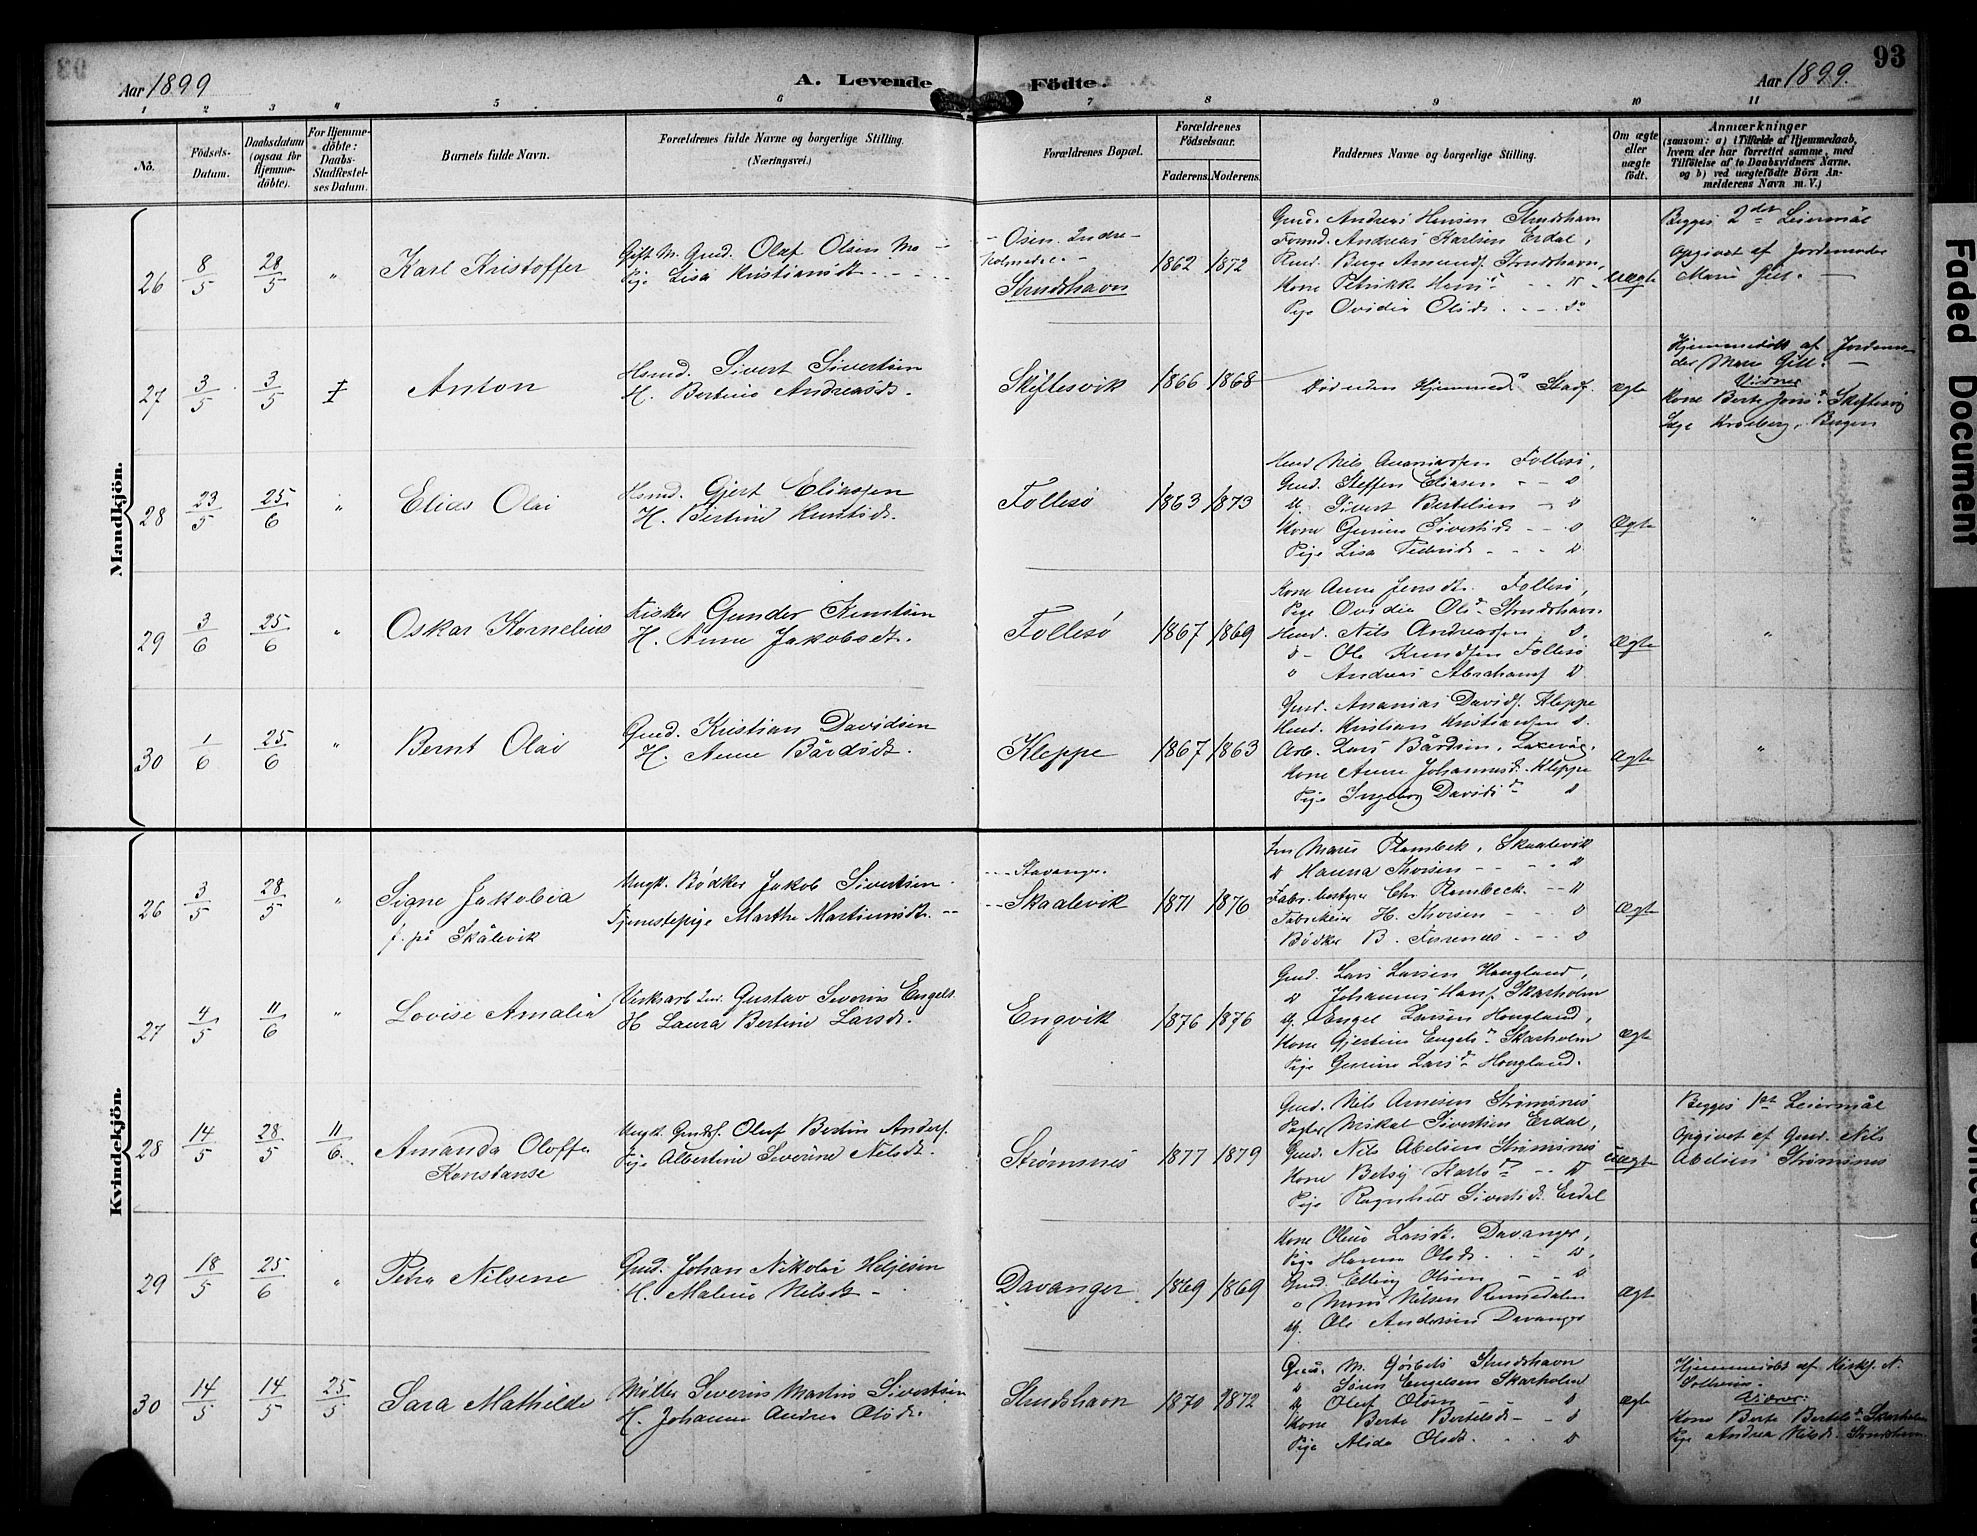 93
Aar 1899
A. Levende Födte.
Aar 1899.
1 2 3 4 5 6 7 8 9 10 11
No.
Födsels-Datum.
Daabsdatum (ogsaa for Hjemme-döbte).
For Hjemme-döbte: Daabs-Stadfestel-ses Datum.
Barnets fulde Navn.
Forældrenes fulde Navne og borgerlige Stilling.
(Næringsvei.)
Forældrenes Bopæl.
Forældrenes Födselsaar.
Faderens. Moderens.
Faddernes Navne og borgerlige Stilling.
Om ægte eller uægte födt.
Anmærkninger
(saasom: a) i Tilfælde af Hjemmedaab, hvem der har forrettet samme, med Tilföielse af to Daabsvidners Navne. og b) ved uægtefödte Börn An-melderens Navn m. V.)
Mandkjön.
26 8/5 28/5 " Karl Kristoffer
Gift M. Gmd. Olaf Olsen Mo
Pige Lisa Kristiansdt.
Osen. Indre
Holmedal.
Strudshavn
1862 1872
Gmd. Andreas Hansen Strudshavn
Andreas Karlsen Erdal,
Birge Amund. Strudshavn,
Kone Petrikke Hans
Pige Ovidia Olsd.
Uægte
Begges 2det Leiermål
Opgivet af Jordemoder
Marie Gill.
27 3/5 3/5 ‡ Anton
Hsmd. Sivert Sivertsen
H. Bertine Andreasdt.
Skiftesvik
1866 1868
Död uden Hjemmed. Stadf.
Ægte
Hjemmedöbt af Jordemo-
der Marie Gill.
Vidner
Kone Berte Jons. Skiftesvig
Kroeberg, Bergen
28 23/5 25/6 " Elias Olai
Hsmd. Gjert Eliassen
H. Bertine Knutsdt.
Follesö
1863 1873
Nils Ananiassen Follesö,
Gmd. Steffen Eliasen
U. Sivert Bertelsen
Kone Gurine Sivertsd.
Pige Lisa Pedersd.
Ægte
"
29 3/6 25/6 " Oskar Kornelius
Fisker Gunder Knutsen
H. Anne Jakobsdt.
Follesö
1867 1869
Kone Anne Jensdt. Follesö,
Pige Ovidia Ols. Strudshavn
Nils Andreassen
Ole Knudsen Follesö
Andreas Abrahams.
Ægte
"
30 1/6 25/6 " Bernt Olai
Gmd. Kristian Davidsen
H. Anne Bårdsdt.
Kleppe
1867 1863
Gmd. Ananias Davids. Kleppe
Kristian Kristiansen
Arb. Lars Bårdsen, Laxevåg.
Kone Anne Johannesd. Kleppe
Pige Ingeborg Davidsd.
Ægte
"
Kvindekjön.
26 3/5 28/5 " Signe Jakobia
f. på Skålevik
Ungk. Bödker Jakob Sivertsen
Tjenestepige Marthe Martinusdt.
Stavanger.
Skaalevik
1871 1876
Fru Marie Plambeck, Skaalevik
Hanna Thorsen
Fabr.bestyrer Chr. Plambeck
Fabrikeier H. Thorsen
Bödker B.
Ægte
27 4/5 11/6 " Lovise Amalia
Verksarb. Gustav Severin Engels.
H. Laura Bertine Larsdt.
Engvik
1876 1876
Gmd. Lars Larsen Hougland,
Johannes Hans. Skarholm
U. Engel Larsen Hougland,
Kone Gjertine Engelsd. Skarholm
Pige Gurine Larsd. Hougland.
Ægte
28 14/5 28/5 11/6 Amanda Oloffa
Konstanse
Ungk. Gmds. Oluf Bertin Anders.
Pige Albertine Severine Nilsdt.
Strömsnes
1877 1879
Gmd. Nils Arnesen Strömsnes
Mikal Sivertsen Erdal,
Gmd. Nils Abelsen Strömsnes
Kone Betsy Karlsd.
Pige Ragnhild Sivertsd. Erdal
Uægte
Begges 1ste Leiermål
Opgivet af Gmd. Nils
Abelsen Strömsnes
29 18/5 25/6 " Petra Nilsine
Gmd. Johan Nikolai Heljesen
H. Maline Nilsdt.
Davanger
1869 1869
Kone Oline Larsdt. Davanger,
Pige Hanna Olsdt.
Gmd. Elling Olsen
Mons Nilsen
U. Ole Andersen Davanger
Ægte
30 14/5 14/5 25/5 Sara Mathilde
Möller Severin Martin Sivertsen
H. Johanne Andrea Olsdt.
Strudshavn
1870 1872
M. Strudshavn
Sören Engelsen Skarholm
U. Oluf Olsen
Kone Berte Bertelsd.
Pige Alida Olsdt.
Ægte
Hjemmedöbt af Kirks. N.
Solheim.
Vidner:
Kone Berte Bertelsd. Skarholm
Pige Andrea Nilsd. Strudshavn
Faded Document